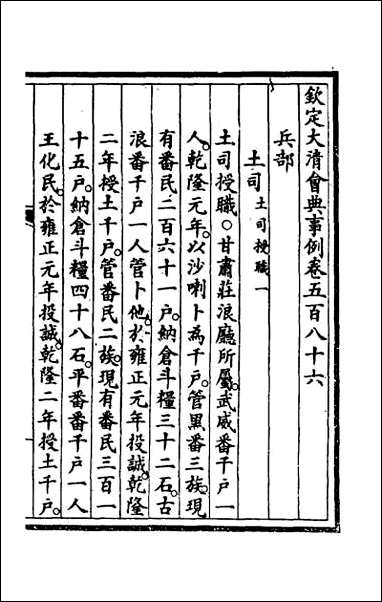 欽定大清會典事例卷五百八十六
兵部
土司土司授職一
土司授職○甘肅莊浪廳所屬武威番千戶一
人乾隆元年以沙喇卜為千戶管黑番三族現
有番民二百六十一戶納倉斗糧三十二石古
浪番千戶一人管卜他於雍正元年投誠乾隆
二年授土千戶管番民二族現有番民三百一
十五戶納倉斗糧四十八石平番番千戶一人
王化民於雍正元年投誠乾隆二年授土千戶